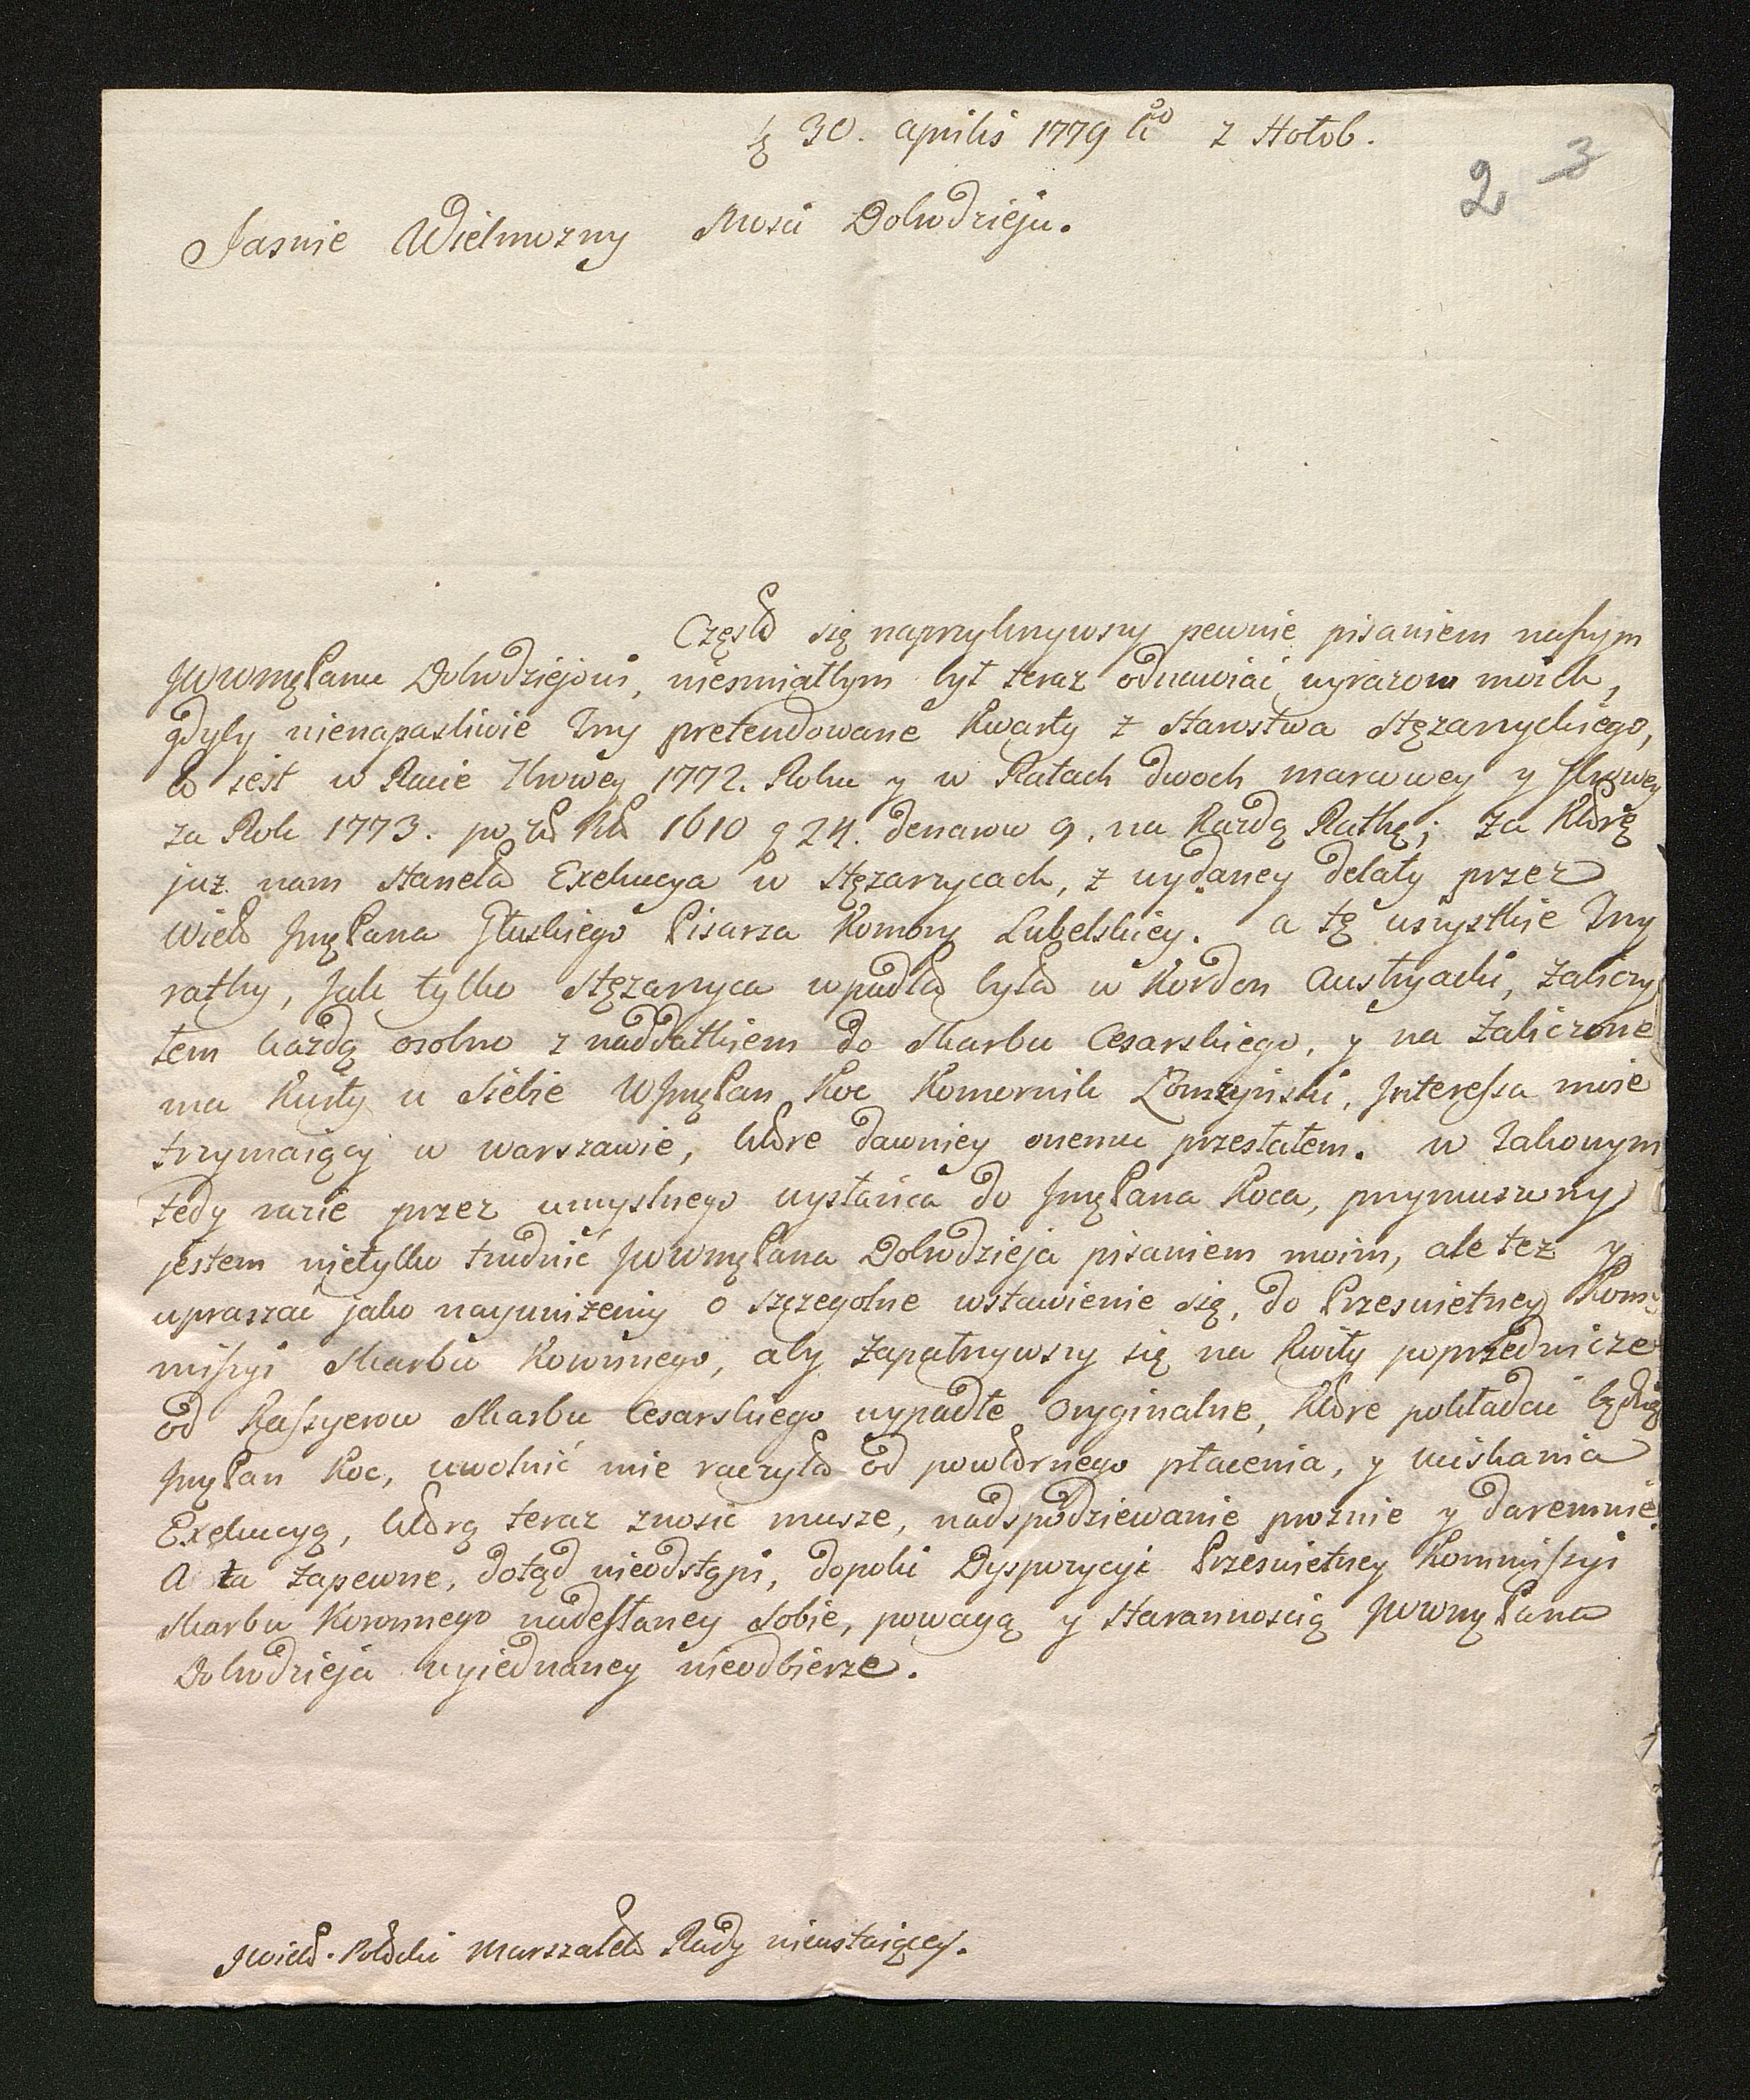 30. aprilis 1779 z Hołob.
2 3
Jasnie Wielmozny Mosci Dobrodzieju.
Często się naprzykrzywszy pewnie pisaniem naszym
JWWmęPanu Dobrodziejowi, niesmiałbym był teraz odnawiać wyrazow moich,
gdyby nienapastliwie Trzy pretendowane Kwarty z Starostwa Stęzarzyckiego,
to jest w Racie 7browey 1772. Roku y w Ratach dwoch marcowey y
za Rok 1773. po zło Rło 1610 g 24. denarow 9. na Kazdą Rathę; za Ktorą
juz nam staneła Exekucya w Stęzarzycach, z wydaney delaty przez
Wiel JmęPana Głuskiego Pisarza Komory Lubelskiey. a tę wszystkie Trzy
rathy, Jak tylko Stęzarzyca wpadła była w Kordon Austryacki, zaliczy
łem kazdą osobno z naddatkiem do Skarbu Cesarskiego, y na zaliczone
ma Kwity u siebie WJmęPan Koc Komornik Łomzynski, Interessa moie
trzymaiący w warszawie, ktore dawniey onemu przesłałem. w takowym
tedy razie przez umyslnego wysłańca do JmęPana Koca, przymuszony
jestem nietylko trudnić JWWmęPana Dobrodzieja pisaniem moim, ale tez y
upraszać jako nayunizeniy o szczegolne wstawienie się, do Przeswietney Kom,
missyi Skarbu Koronnego, aby zapatrzywszy się na Kwity poprzednicze
od Kassyerow Skarbu Cesarskiego wypadłe Oryginalne, Ktore pokładać będzie
JmęPan Koc, uwolnić mie raczyła od powtornego płacenia, y uciskania
Exekucyą, ktorą teraz znosić musze, nadspodziewanie proznie y daremnie.
A ta zapewne, dotąd nieodstąpi, dopoki Dyspozycyi Przeswietney Kommissyi
Skarbu Koronnego nadesłaney sobie, powagą y starannoscią JWWmęPana
Dobrodzieja wyiednaney nieodbierze.
JWiel. Potocki Marszałek Rady nieustaiącey.